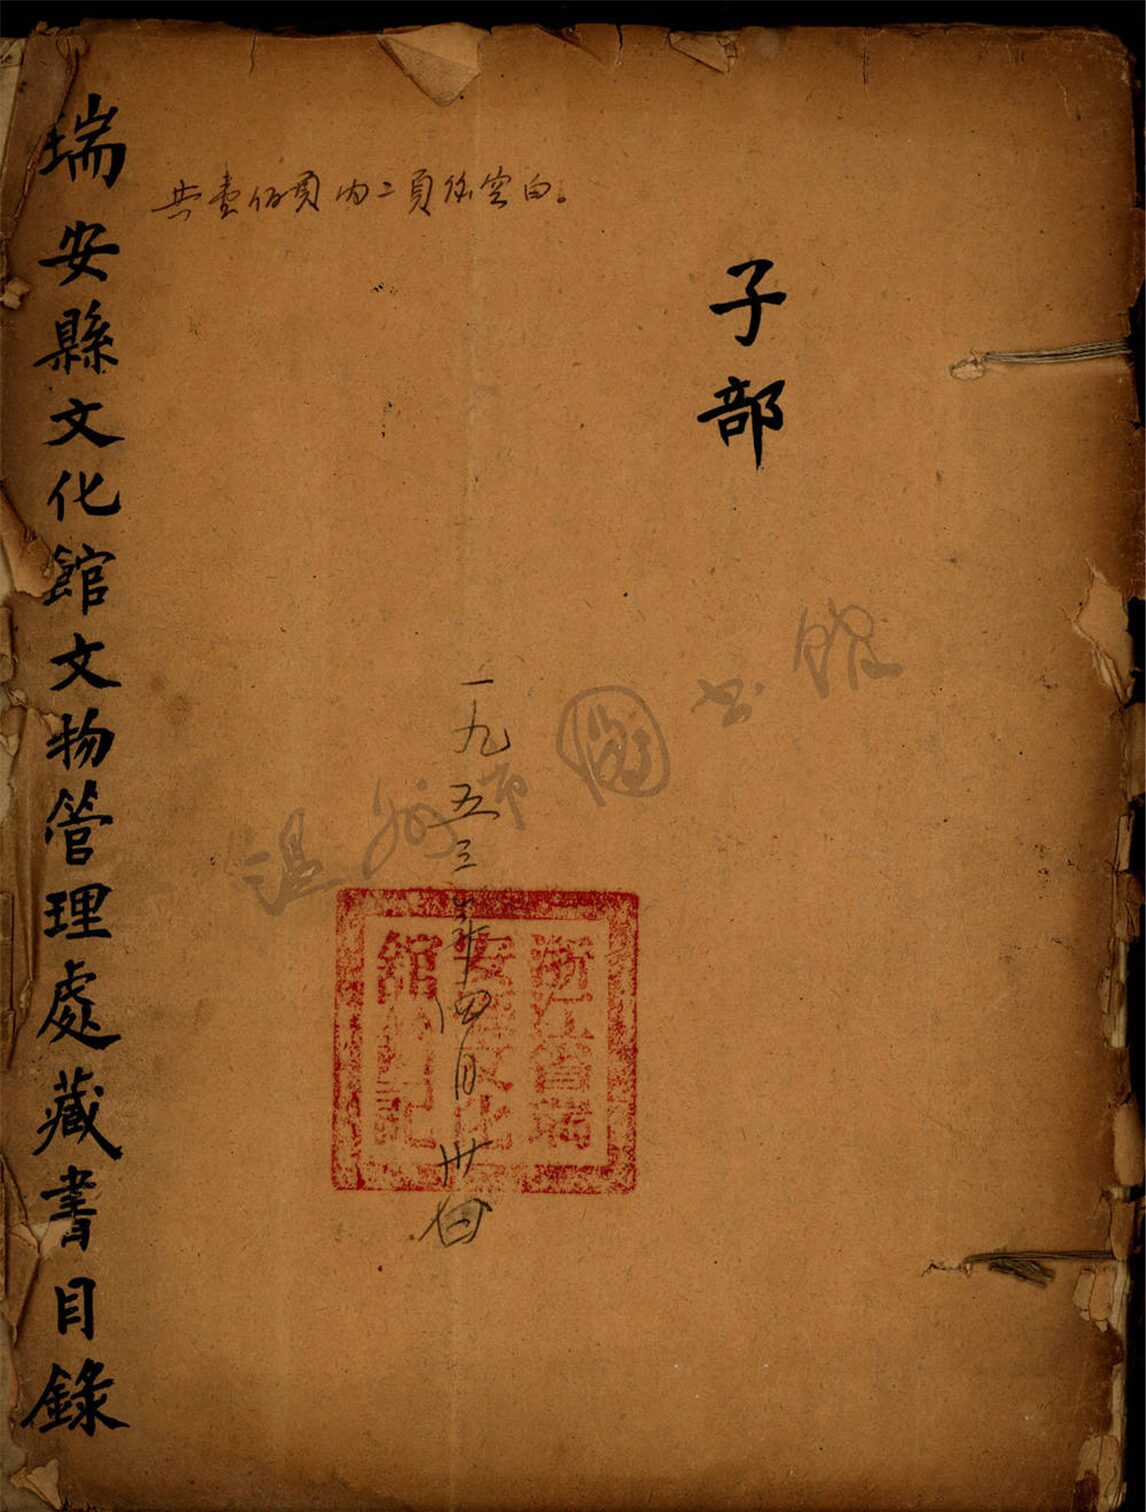 子部
瑞安縣文化館文物管理處藏書目錄
共壹佰頁內二頁係空白。
一九五三年四月卅日
浙江省瑞
安縣文化
館印記
温州市圖书館